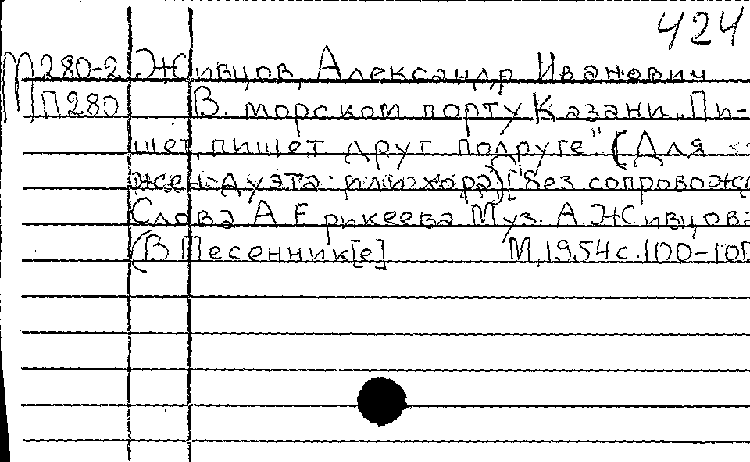 424
М280-2 Живцов, Александр Иванович
П280 В морском порту Казани „Пи-
шет, пишет друг подруге." (Для
жен. дуэта или хора) [Без сопровожд
Слова А Ерикеева Муз. А. Живцова
(В Песенник[е] М, 1954 с. 100-101